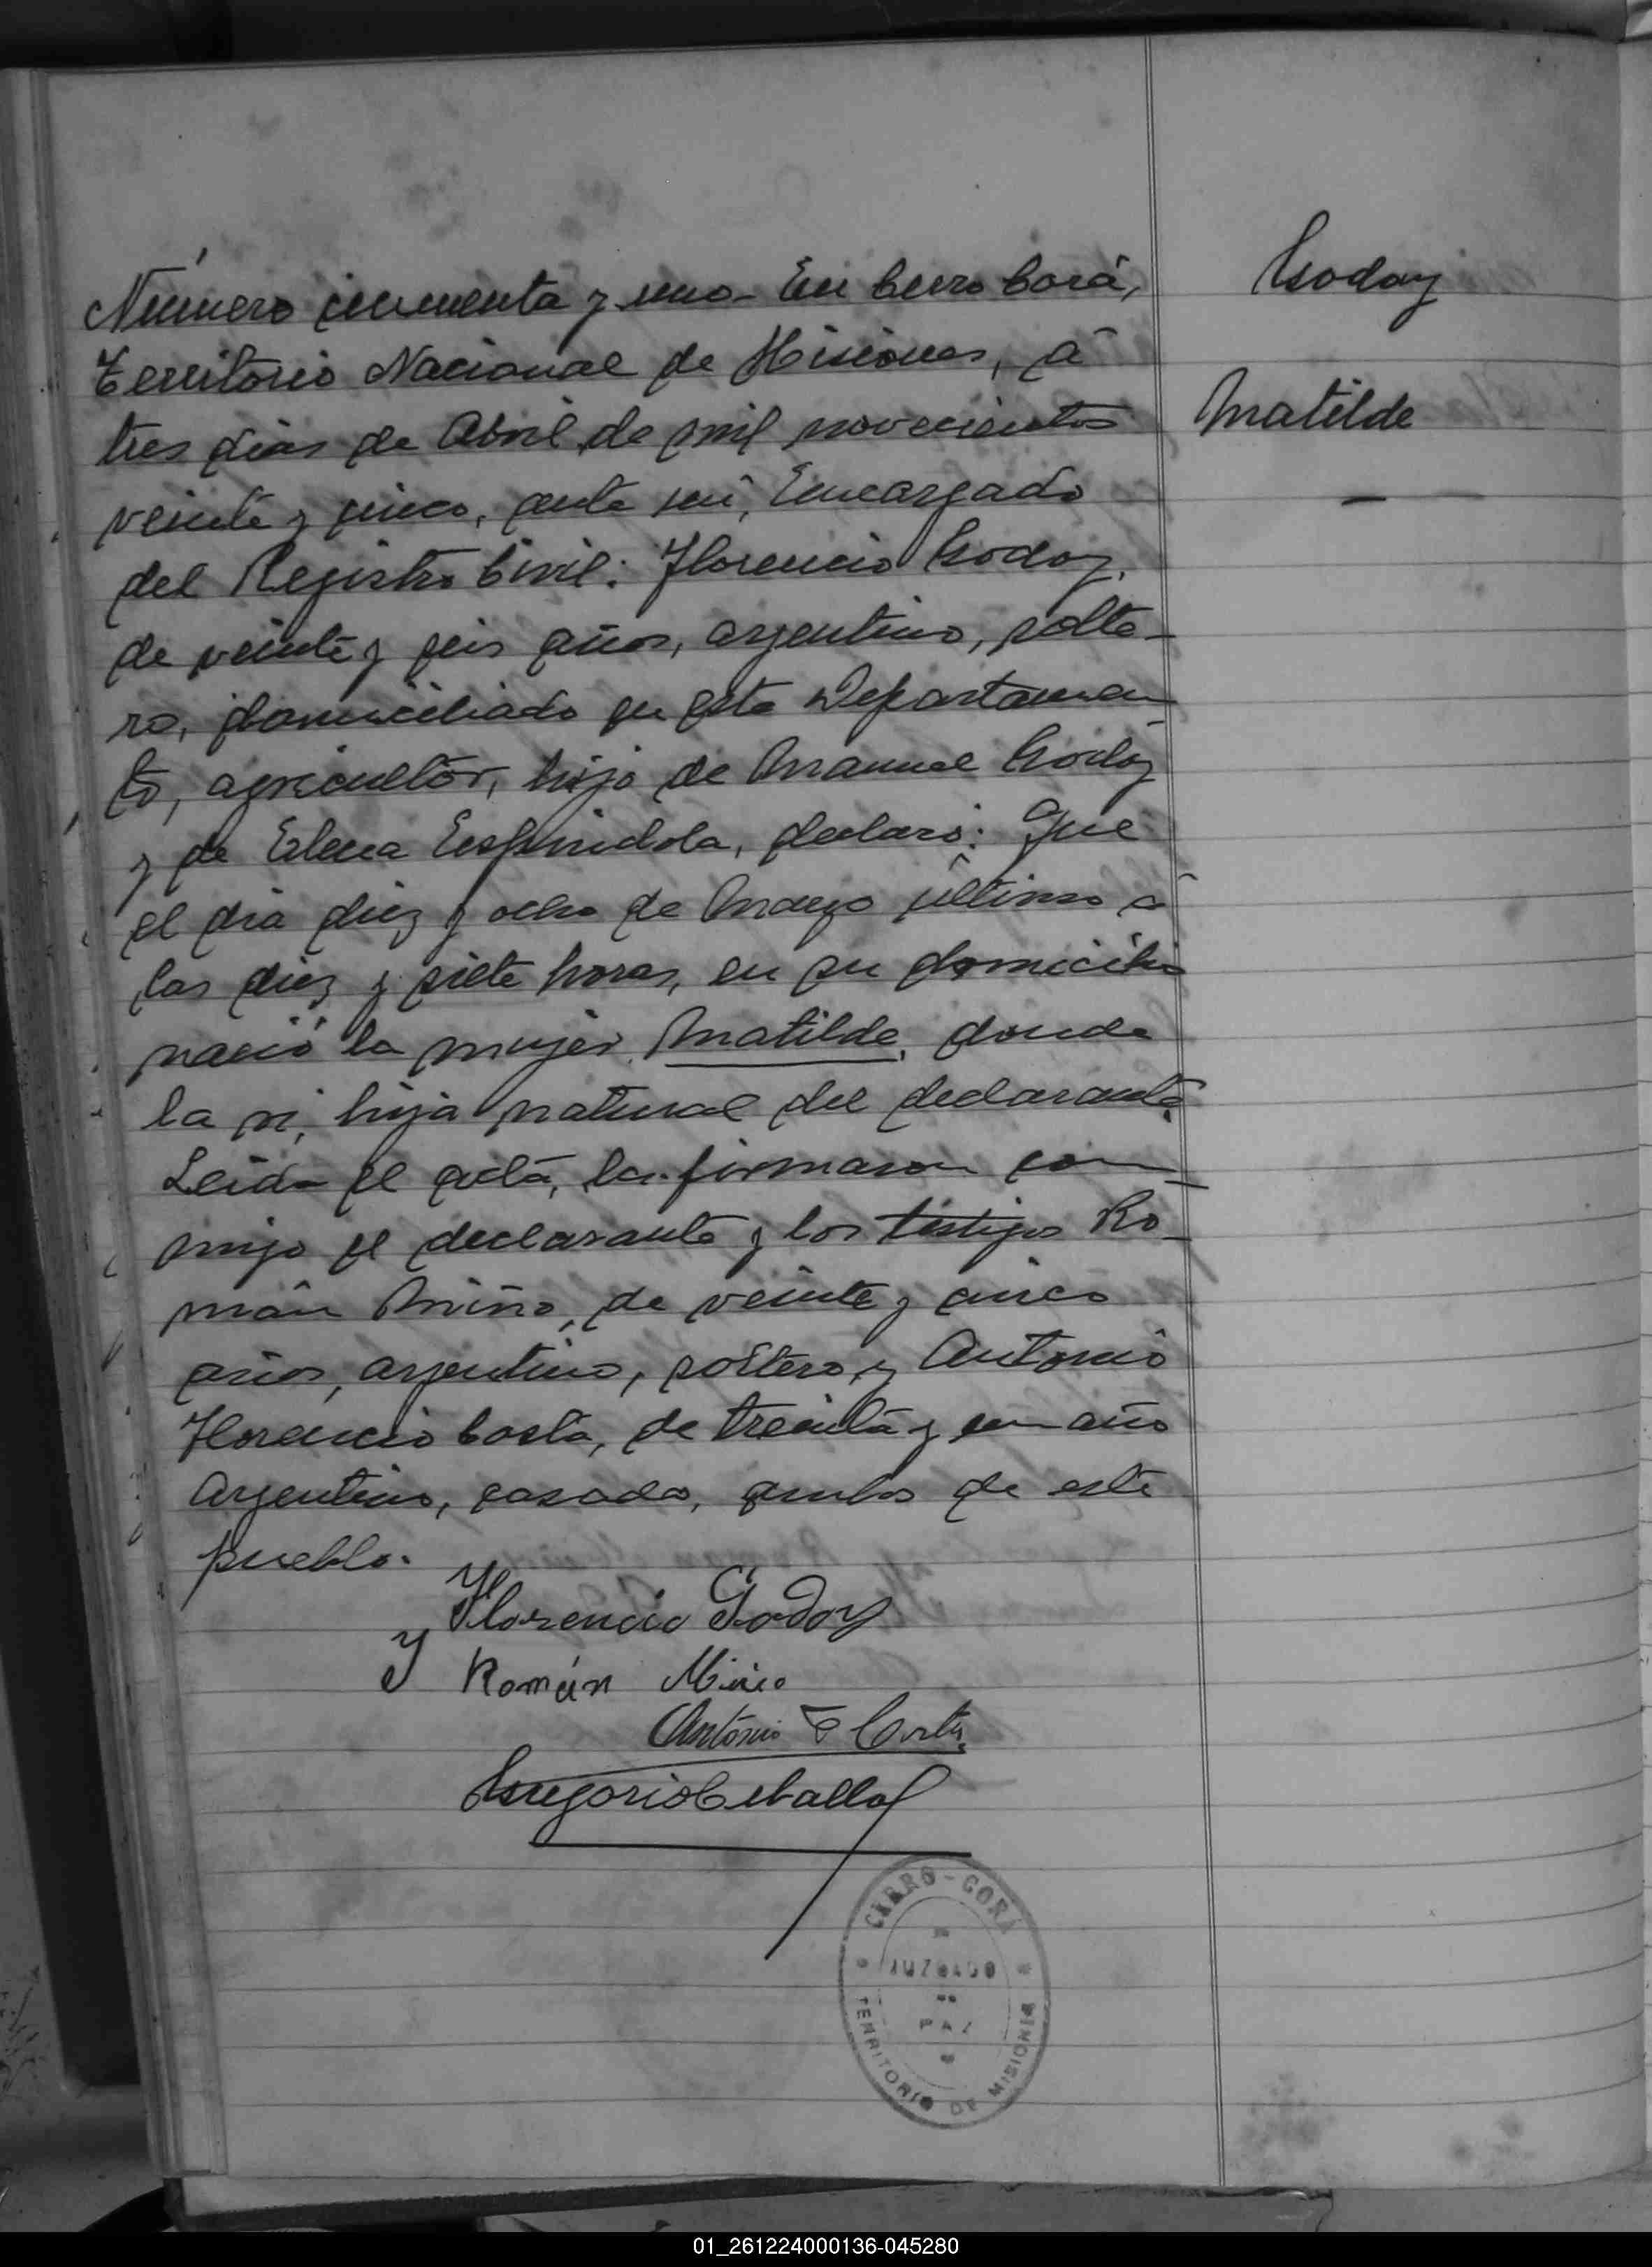 Número cincuenta y uno - En Cerro Corá,
Territorio Nacional de Misiones, á
tres dias de Abril de mil novecientos
veinte y cinco, ante mi, Encargado
del Registro Civil: Florencio Godoy,
de veinte y seis años, argentino, solte-
ro, domiciliado en este Departamen-
to, agricultor, hijo de Manuel Godoy
y de Elena Espindola, declaró: Que
el dia diez y ocho de Marzo último á
las diez y siete horas, en su domicilio
nació la mujer Matilde,
la vi, hija natural del declarante.
Leida el acta, la firmaron con-
migo el declarante y los testigos Ro-
mán Miño, de veinte y cinco
años, argentino, soltero, y Antonio
Florencio Costa, de treinta y un año
Argentino, casado, ambos de este
pueblo.
Florencio Godoy
Y Román Miño
Antonio F Costa
Gregorio Ceballos
Godoy
Matilde
-
CERRO-CORÁ
JUZGADO
DE
PAZ
TERRITORIO DE MISIONES
01_261224000136-045280